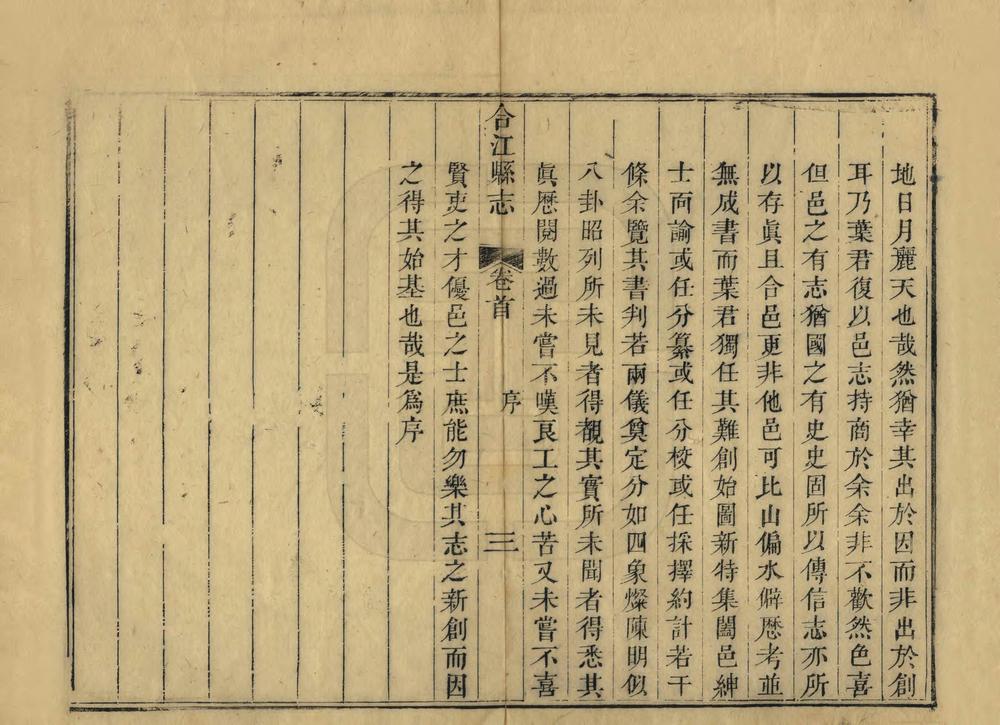 地日月麗天也哉然猶幸其出於因而非出於創
耳乃葉君復以邑志持商於余余非不歡然色喜
但邑之有志猶國之有史史固所以傳信志亦所
以存眞且合邑更非他邑可比山偏水僻歷考並
無成書而葉君獨任其難創始圖新特集闔邑紳
士面諭或任分纂或任分校或任採擇約計若干
條余覽其書判若兩儀奠定分如四象燦陳明似
八卦昭列所未見者得覩其實所未聞者得悉其
眞歷閱數過未嘗不嘆良工之心苦又未嘗不喜
合江縣志
卷首
序
三
賢吏之才優邑之士庶能勿樂其志之新創而因
之得其始基也哉是爲序